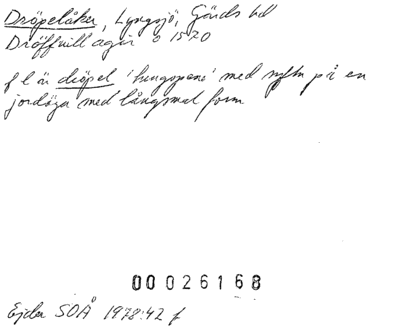 Dröpelåker, Lyngsjö, Gärds hd
Dröffuill ager o 1570
f l är dröpel 'tungspene' med syftn på en
jordäga med långsmal form
00026168
Ejder SOÅ 1978:42 f